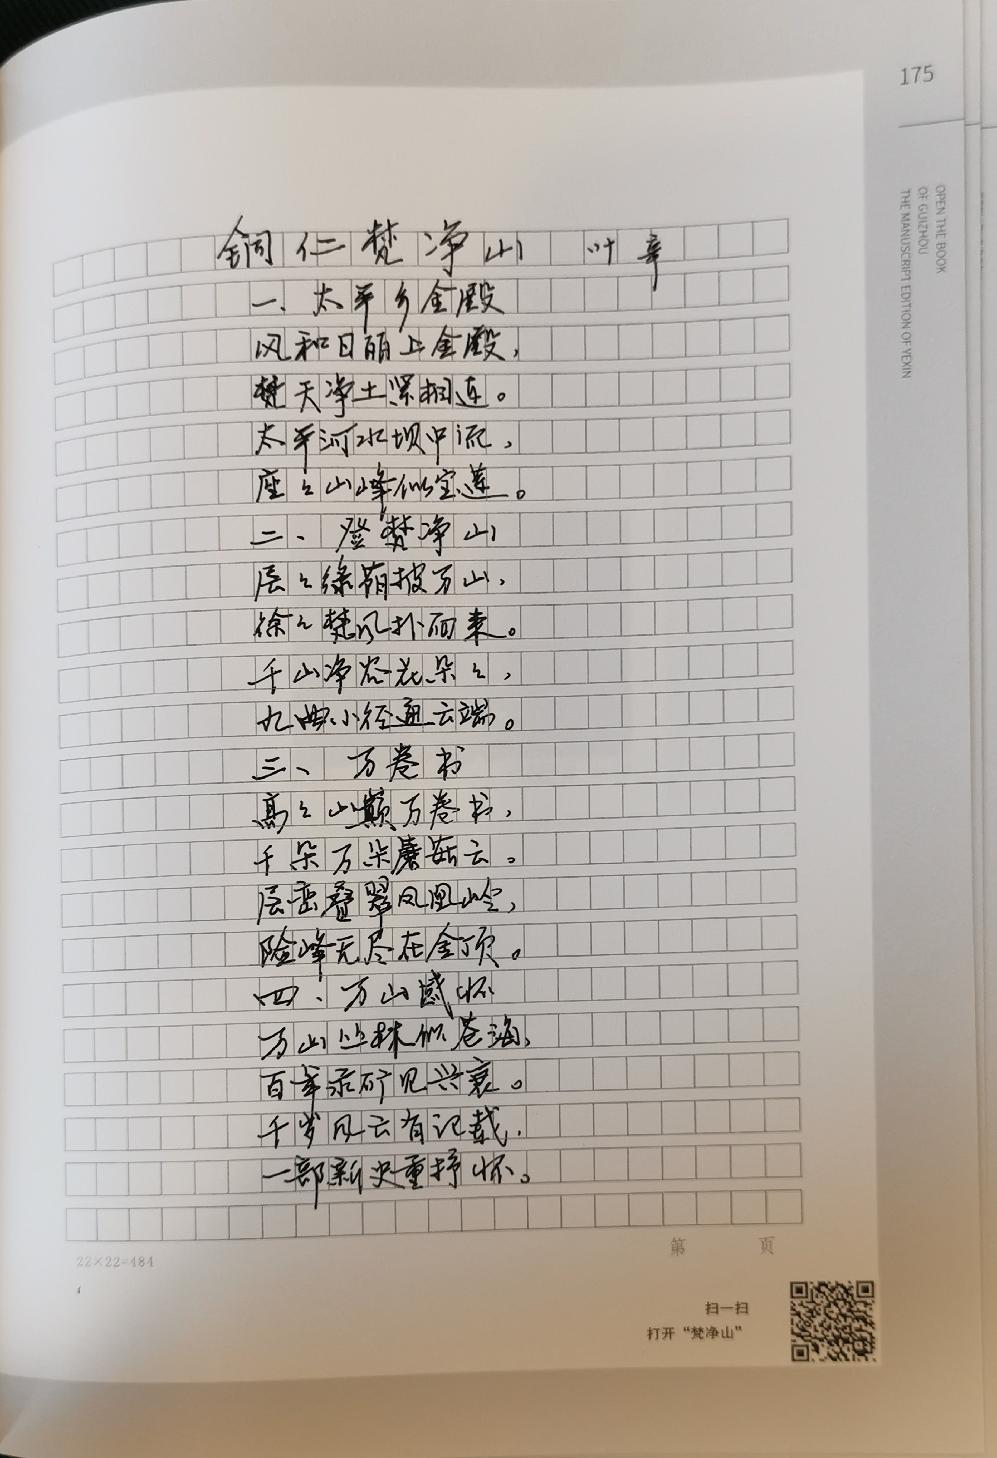 175
OPEN THE BOOK
OF GUIZHOU
THE MANUSCRIPT EDITION OF YEXIN
铜仁梵净山 叶辛
一、太平乡金殿
风和日丽上金殿，
梵天净土紧相连。
太平河水坝中流，
座々山峰似宝莲。
二、登梵净山
层々绿荫披万山，
徐々梵风扑面来。
千山净谷花朵々，
九曲小径通云端。
三、万卷书
高々山巅万卷书，
千朵万朵蘑菇云。
层峦叠翠凤凰岭，
险峰无尽在金顶。
四、万山感怀
万山丛林似苍海，
百年汞矿见兴衰。
千岁风云有记载，
一部新史重抒怀。
22×22=484
第 页
扫一扫
打开“梵净山”